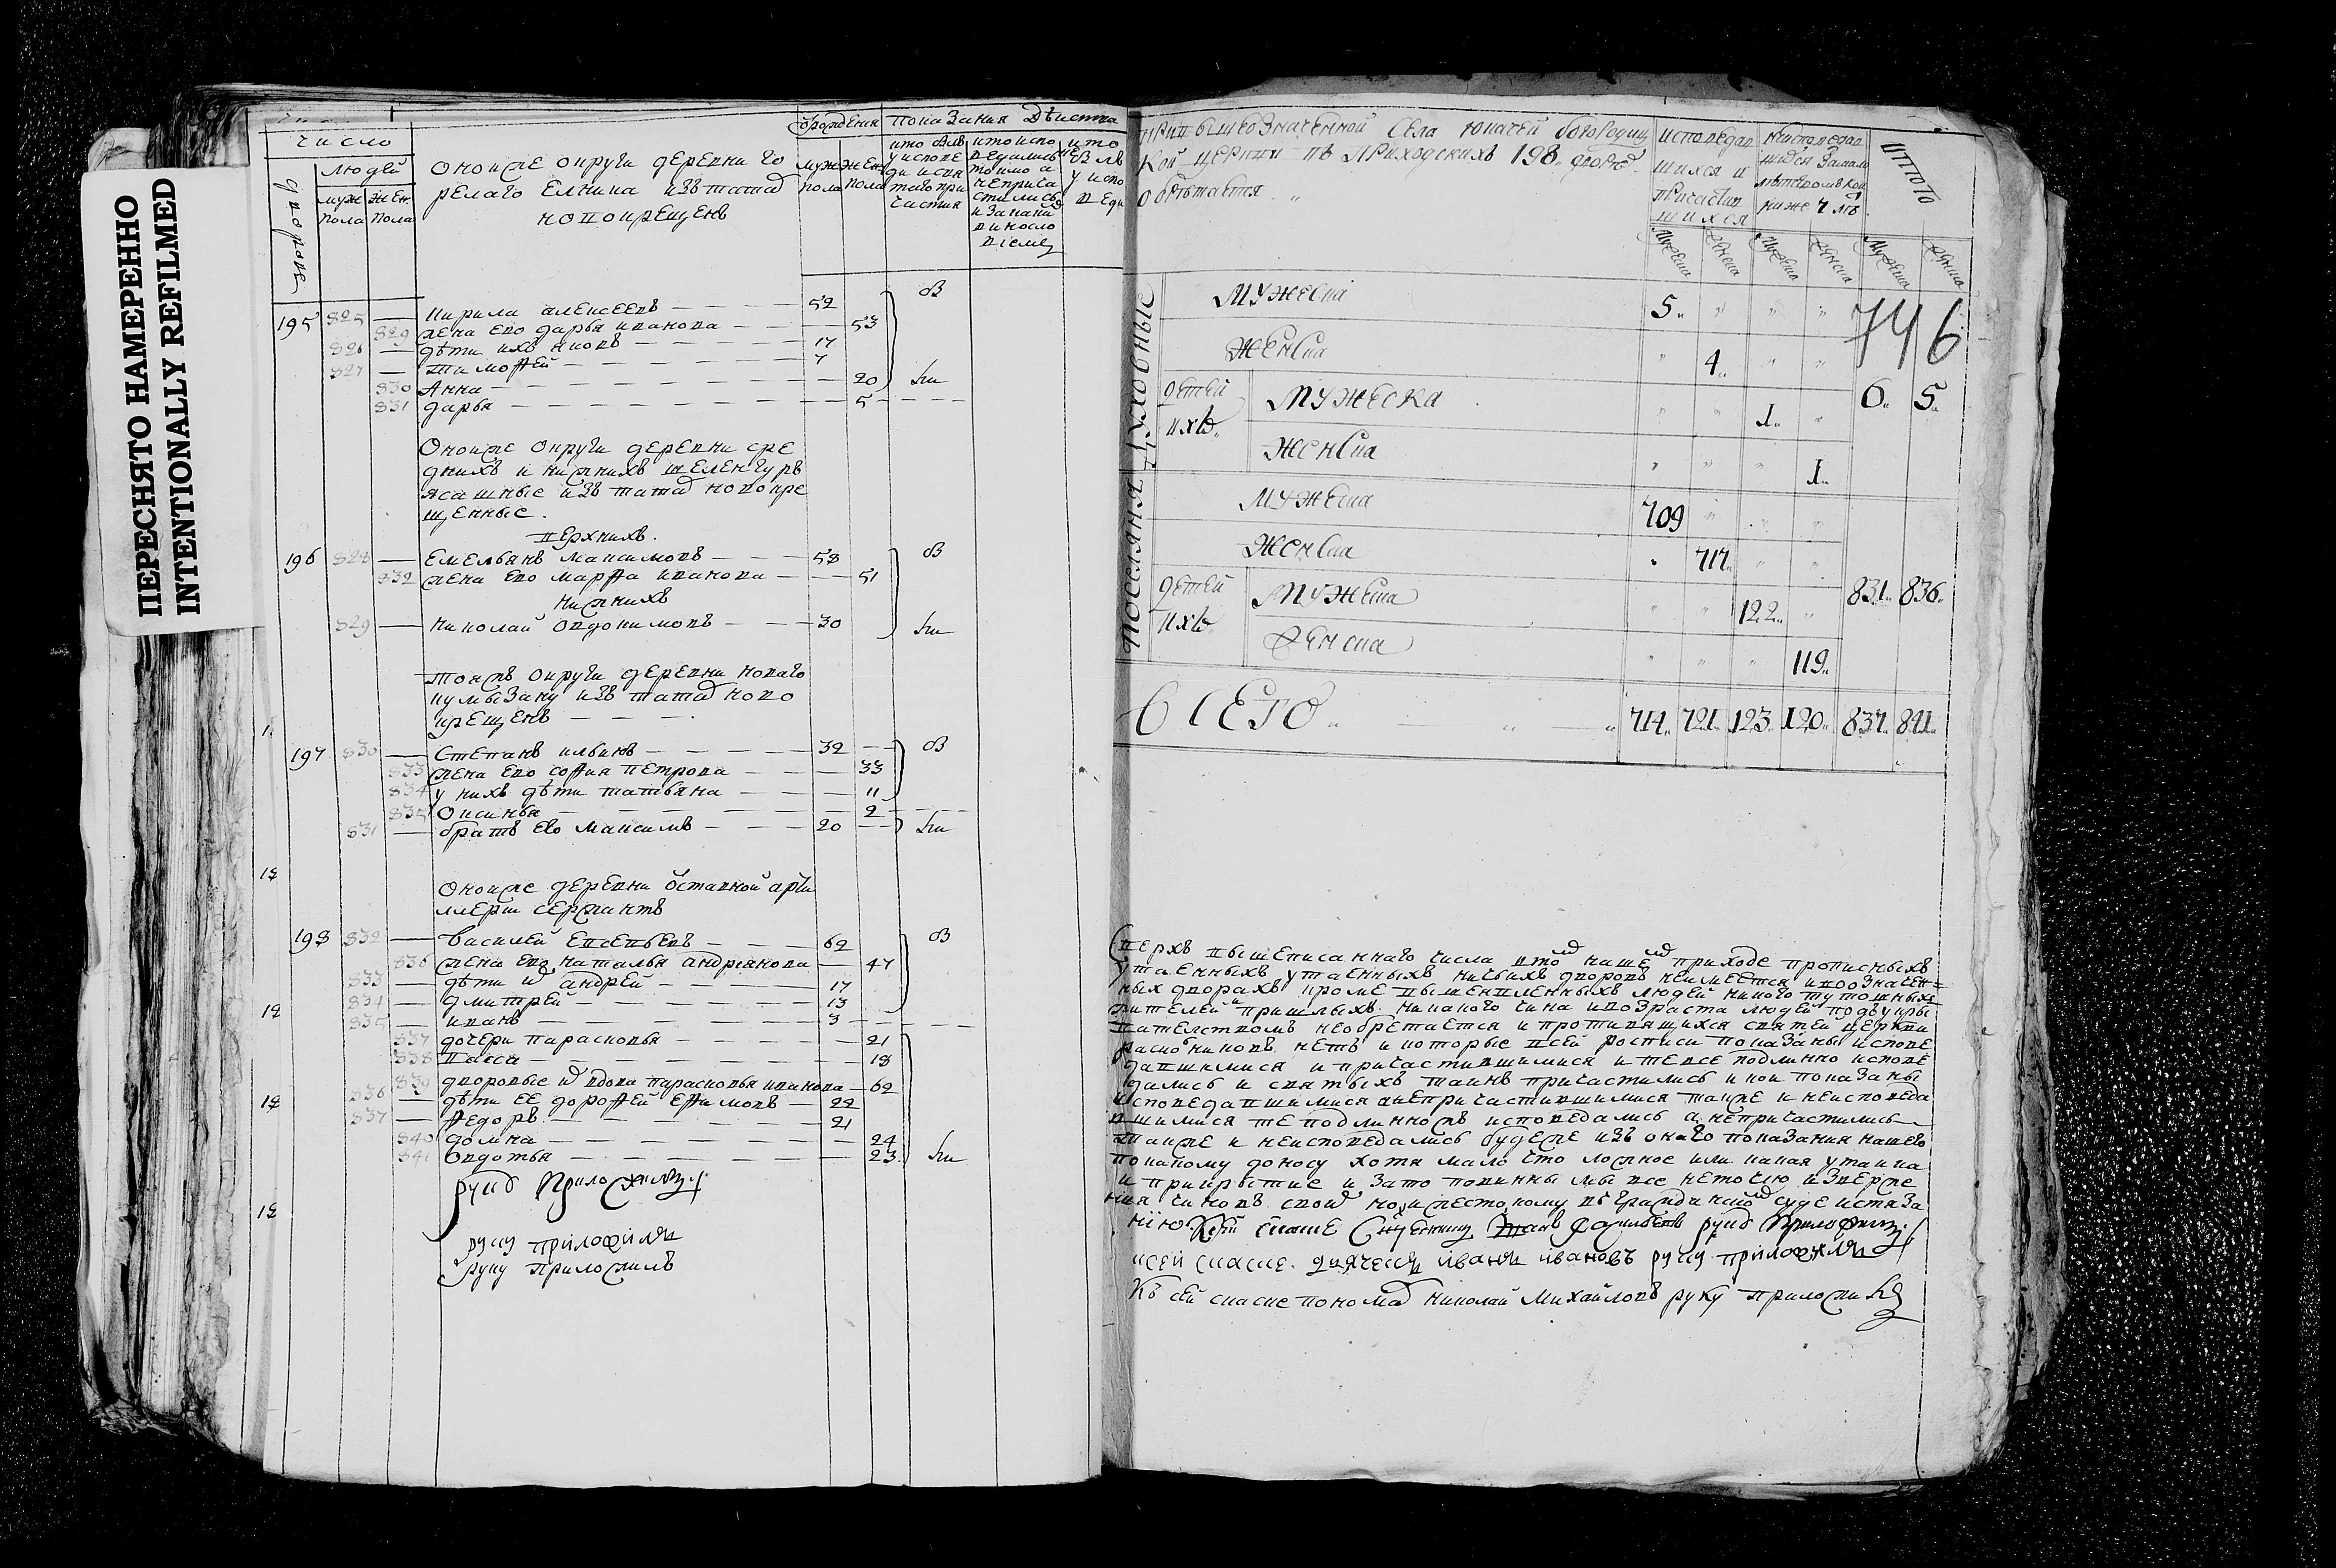 ПЕРЕСНЯТО НАМЕРЕННО
INTENTIONALLY REFILMED
число
людей
дворовъ
муж пола
жен пола
Оноиже округи деревни го
релаго елника изъ татар
новокрещенъ
от рождения
муж пола
жен пола
показания действа
195 825 — кирила алексеевъ — 52
829 жена ево дарья иванова — 53
826 — дѣти ихъ — 17
827 — тимофей — 7
830 Анна — 20
831 дарья — 5
Оноиже округи деревни сре
днихъ и нижнихъ шеленгуръ
ясашные изъ татар новокре
щенные.
верхнихъ.
196 828 — Емельянъ максимовъ — 58
832 жена ево марфа иванова — 51
нижнихъ
829 — николай — 30
тоижъ округи деревни новаго
кумызану изъ татар ново
крещенъ
197 830 — степанъ ильинъ — 32
833 жена ево софия петрова — 33
834 у нихъ дѣти татьяна — 11
835 Оксинья — 2
831 — братъ ево максимъ — 20
Оноиже деревни отставной арти
ллерии сержантъ
198 832 — василей евсевьевъ — 62
836 жена ево наталья андреянова — 47
833 — дѣти их андрей — 17
834 — дмитрей — 13
835 — иванъ — 3
837 дочери парасковья — 21
838 васса — 18
839 дворовые их вдова парасковья иванова — 62
836 — дѣти ее дорофей ефимовъ — 22
837 — федоръ — 21
840 домна — 24
841 Овдотья — 23
руку приложилъ
руку приложилъ
руку приложилъ
при вышеозначенной села богородиц
кой церкви въ приходскихъ 198 дворе
обрѣтается
исповедав
шихся и
причастив
шихся
итого
мужеска женска мужеска женска мужеска женска
духовные
мужеска 5 74 6
женска 4
детей ихъ мужеска 1 6 5
женска 1
поселяня
мужеска 709
женска 717
детей ихъ мужеска 122 831 836
женска 119
Всего 714 721 123 120 837 841
сверхъ вышеписаннаго числа въ нашем приходе прописныхъ
утаенныхъ дворовъ неимеется
ных дворахъ кроме вышеявленныхъ людей никого тутошныхъ
жителей и пришлыхъ никакого чина ивозраста людей подъукры
вателствомъ необретается и противящихся святей церкви
расколниковъ нетъ и которые всей росписи показаны испове
давшимися и причастившимися и те все подлинно испове
дались и святыхъ таинъ причастились и кои показаны
исповедавшимися анепричастившимися також и неисповеда
вшимися те подлинножъ исповедались а непричастились
також и неисповедались будеже изъ онаго показания нашего
покакому доносу хотя мало что ложное или какая утаика
и прикрытие и зато повинны мы все неточию изверже
ния чиновъ своих но и жестокому въ гражданском суде истяза
нию. Къ сей скаске священникъ руку приложилъ
ксей скаске дьячекъ иванъ ивановъ руку приложилъ
Къ сей скаске пономар николай михайловъ руку приложилъ